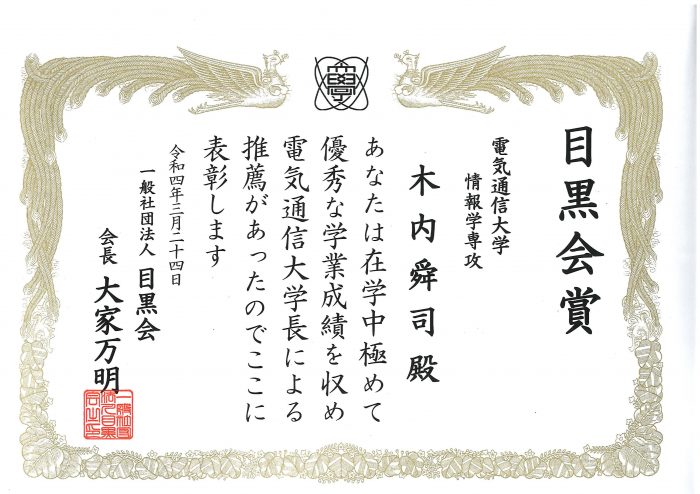 目黒会賞
電気通信大学
情報学専攻
木内舜司殿
あなたは在学中極めて
優秀な学業成績を収め
電気通信大学長による
推薦があったのでここに
表彰します
令和四年三月二十四日
一般社団法人 目黒会
会長 大家万明